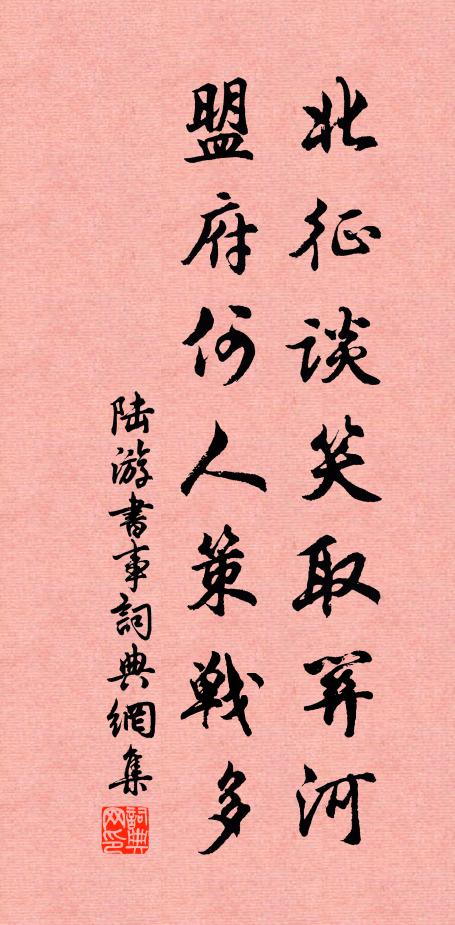 北征谈笑取関河
盟府何人策戦多
陆游書事詞典網集
詞典网印